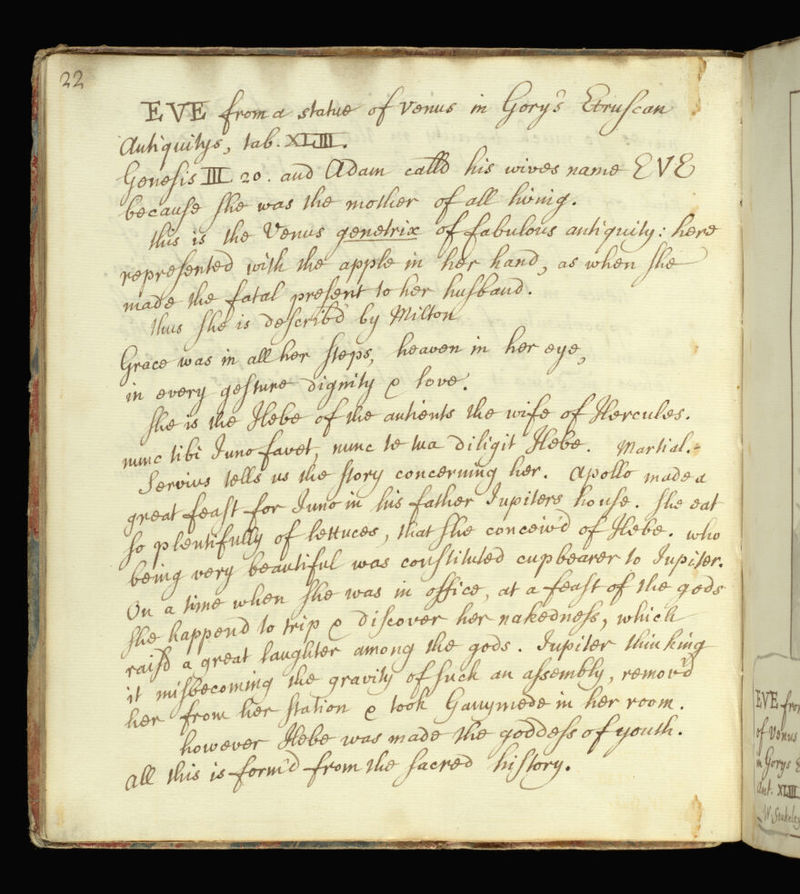 22
EVE from a statue of Venus in Gory's Etruscan
Antiquitys, tab. XLIII.
Genesis III 20. and Adam calld his wives name EVE
because she was the mother of all living.
this is the Venus genetrix of fabulous antiquity: here
represented with the apple in her hand, as when she
made the fatal present to her husband.
thus she is describ'd by Milton
Grace was in all her steps, heaven in her eye,
in every gesture dignity & love.
She is the Hebe of the antients the wife of Hercules.
nunc tibi Juno favet, nunc te tua diligit Hebe. Martial.
Servius tells us the story concerning her. Apollo made a
great feast for Juno in his father Jupiters house. She eat
so plentifully of lettuces, that she conceiv'd of Hebe. who
being very beautiful was constituted cupbearer to Jupiter.
On a time when she was in office, at a feast of the gods
she happend to trip & discover her nakedness, which
raisd a great laughter among the gods. Jupiter thinking
it misbecoming the gravity of such an assembly, remov'd
her from her station & took Ganymede in her room.
however Hebe was made the goddess of youth.
All this is form'd from the sacred history.
EVE from
of Venus
in Gorys E
Ant. XLIII
W. Stukeley